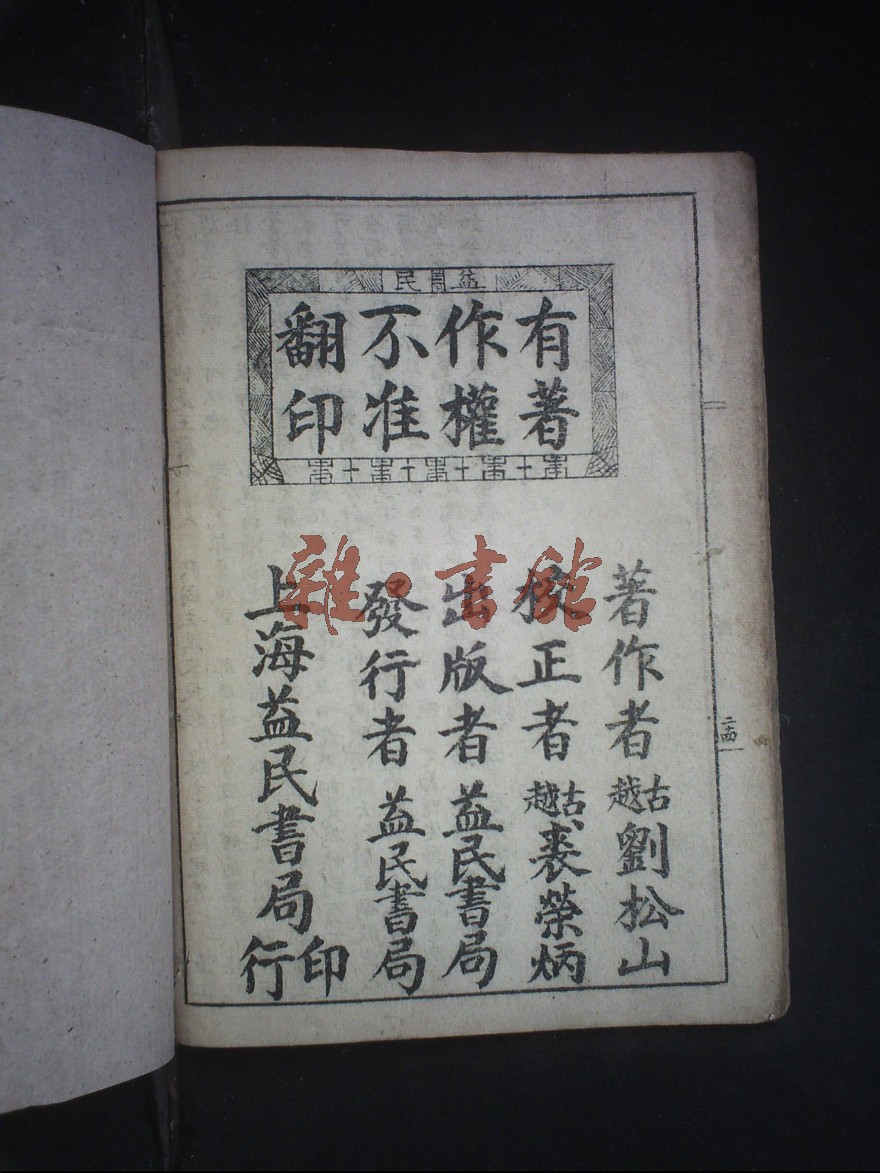 益書民
有著
作權
不准
翻印
著作者 古越 劉松山
校正者 古越 裘榮炳
出版者 益民書局
發行者 益民書局
上海益民書局印行
雜書館